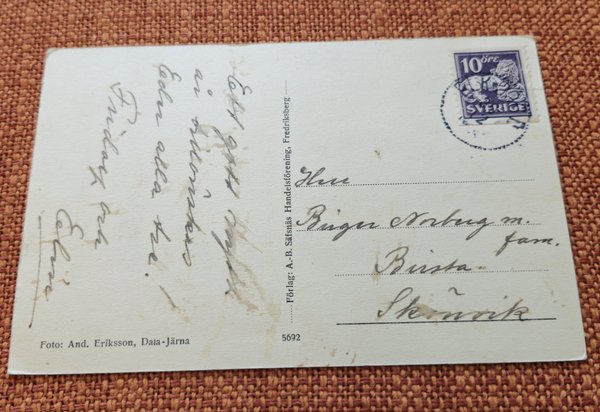 Ett gott Nytt
år tillönskas
Eder alla tre!
Fridolf och
Elin
Foto: And. Eriksson, Dala-Järna
Förlag: A.-B. Säfsnäs Handelsförening, Fredriksberg
5692
10 ÖRE
SVERIGE
Herr
Birger Norberg m.
fam.
Birsta
Skönvik